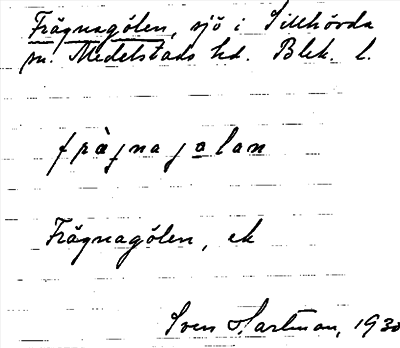 Frägnagölen, sjö i Tillhövda
sn. Medelstads hd. Blek. l.
fràgna ja̲lan
Frägnagölen, ek
Sven Hartman, 1930